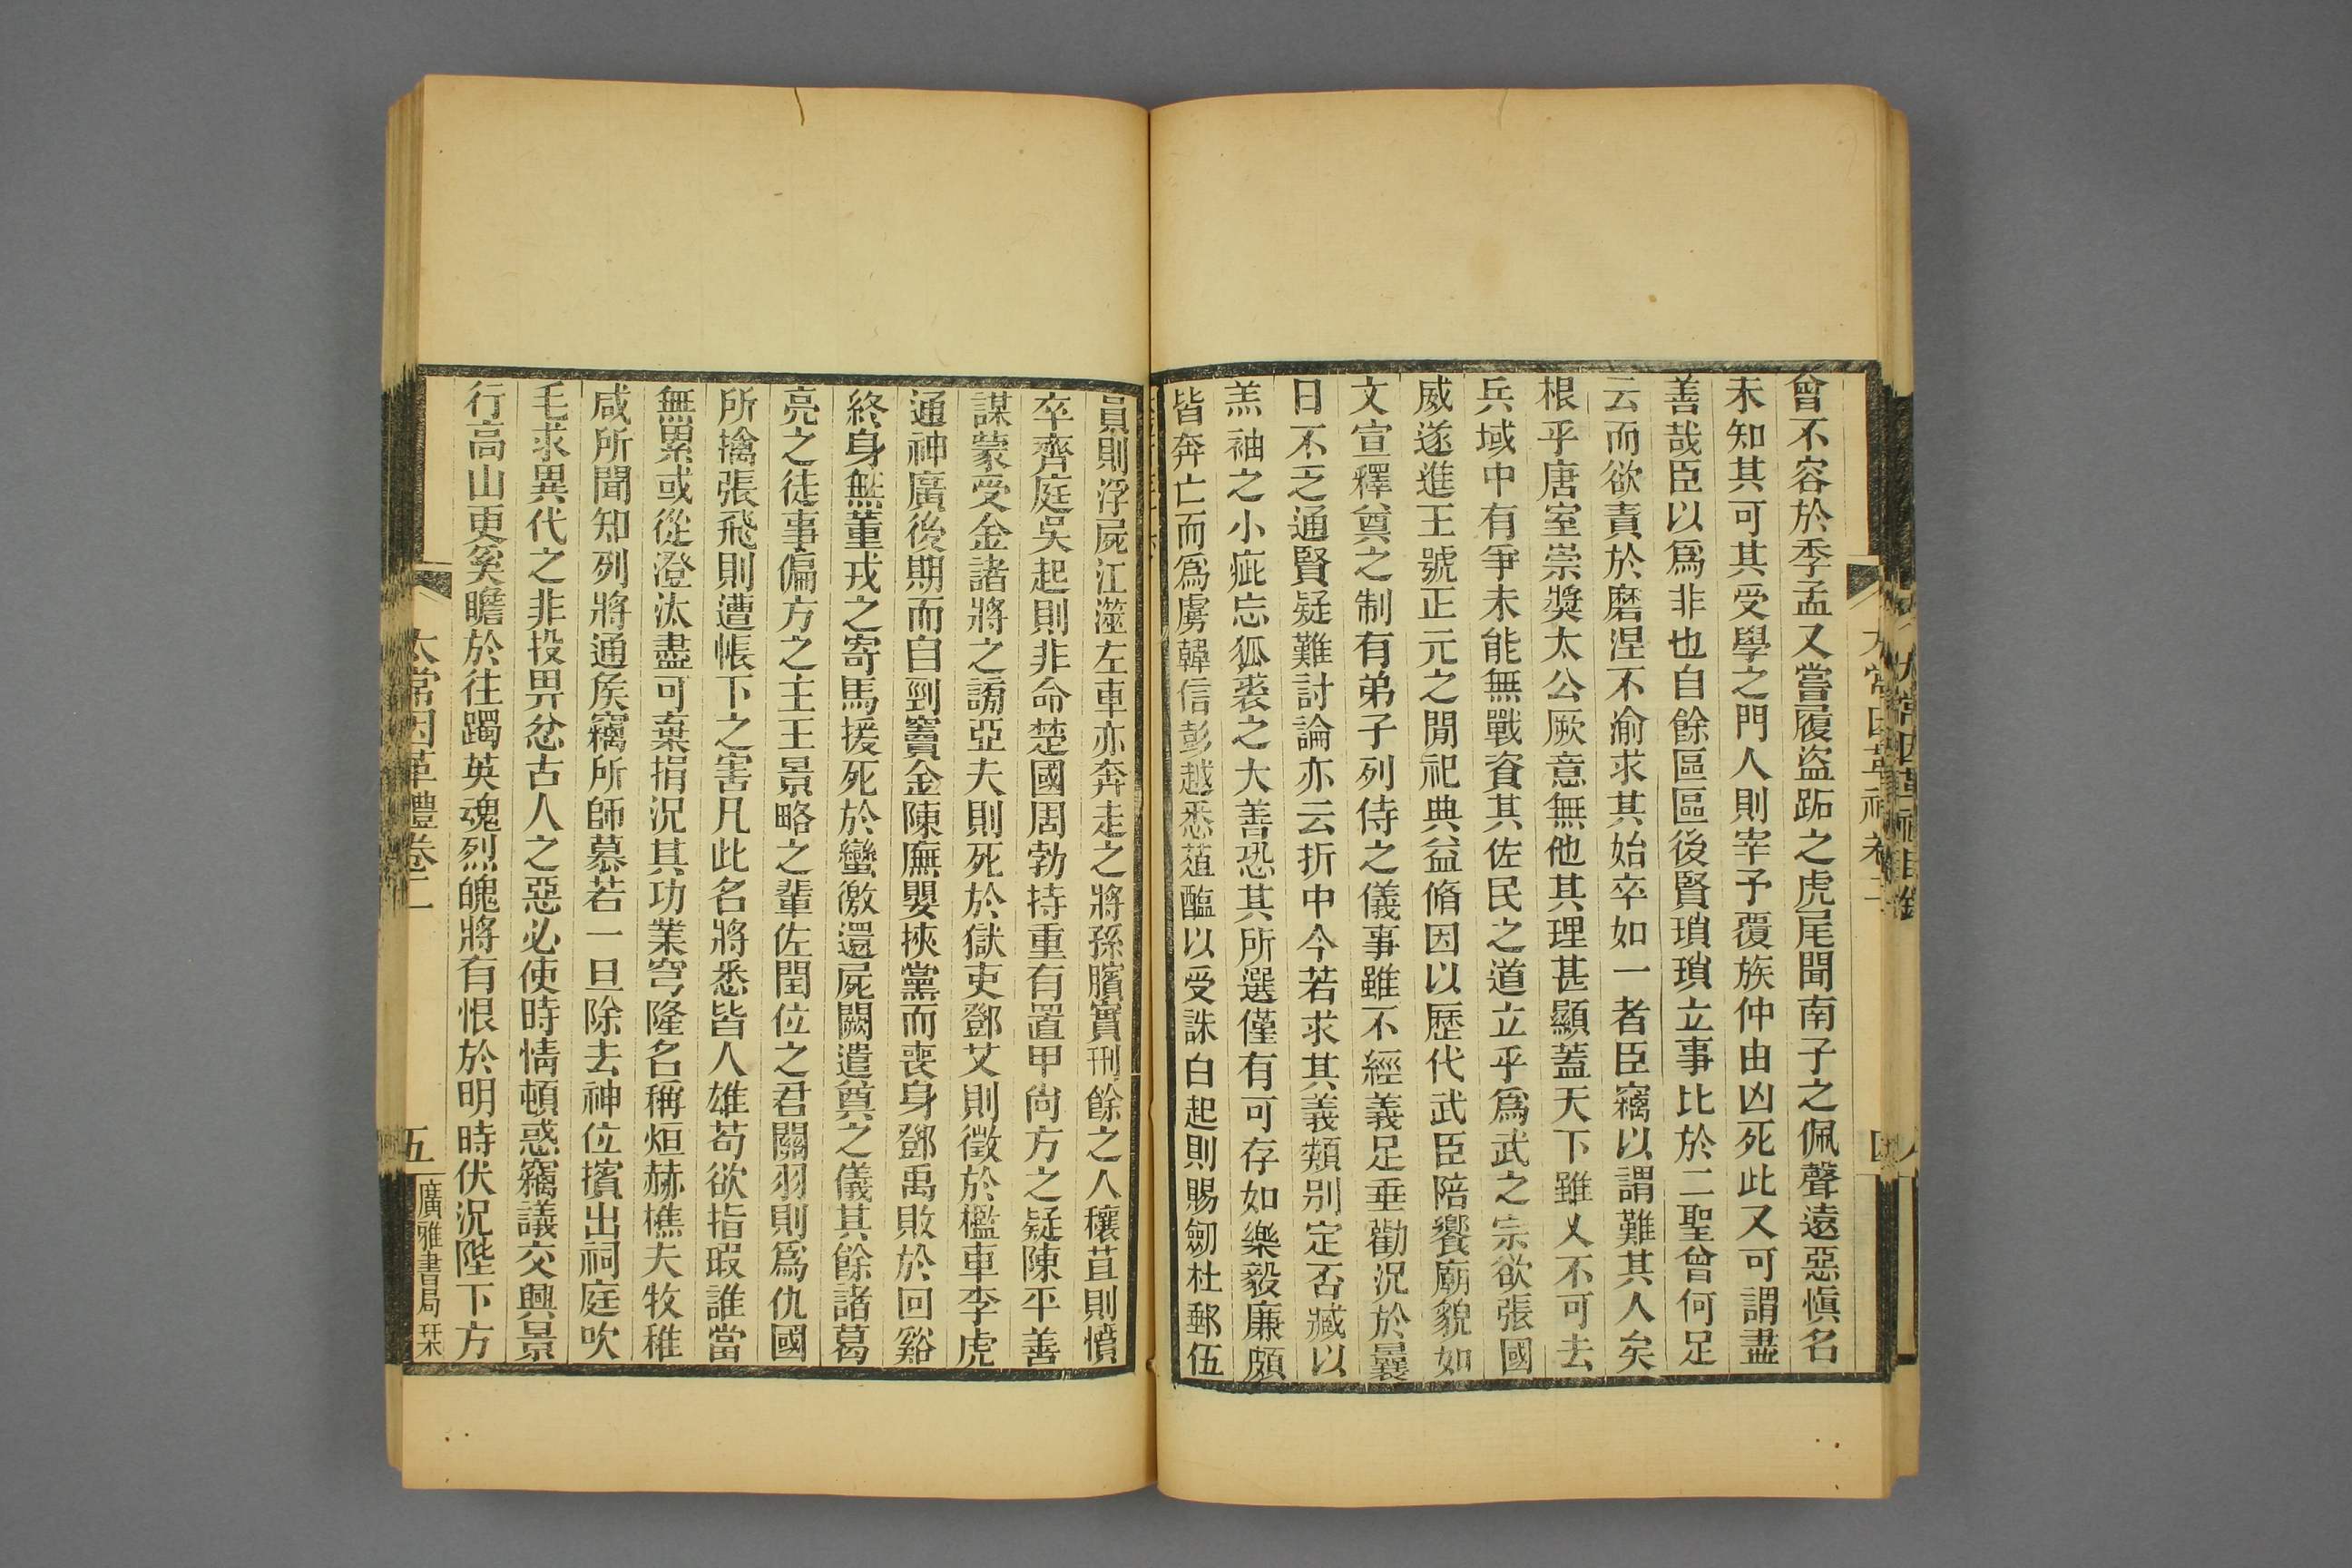 曾不容於季孟又嘗履盜跖之虎尾聞南子之佩聲遠惡愼名
未知其可其受學之門人則宰予覆族仲由凶死此又可謂盡
善哉臣以爲非也自餘區區後賢瑣瑣立事比於二聖曾何足
云而欲責於磨涅不渝求其始卒如一者臣竊以謂難其人矣
根乎唐室崇獎太公厥意無他其理甚顯蓋天下雖乂不可去
兵域中有爭未能無戰資其佐民之道立乎爲武之宗欲張國
威遂進王號正元之閒祀典益脩因以歷代武臣陪饗廟貌如
文宣釋奠之制有弟子列侍之儀事雖不經義足垂勸況於曩
日不乏通賢疑難討論亦云折中今若求其義類别定否臧以
羔袖之小疵忘狐裘之大善恐其所選僅有可存如樂毅廉頗
皆奔亡而爲虜韓信彭越悉葅醢以受誅白起則賜劒杜郵伍
員則浮屍江澨左車亦奔走之將孫臏實刑餘之人穰苴則憤
卒齊庭吳起則非命楚國周勃持重有置甲尙方之疑陳平善
謀蒙受金諸將之謗亞夫則死於獄吏鄧艾則徵於檻車李虎
通神廣後期而自剄竇金陳廡嬰挾黨而喪身鄧禹敗於回谿
終身無董戎之寄馬援死於蠻徼還屍闕遣奠之儀其餘諸葛
亮之徒事偏方之主王景略之輩佐閏位之君關羽則爲仇國
所擒張飛則遭帳下之害凡此名將悉皆人雄苟欲指瑕誰當
無累或從澄汰盡可棄捐況其功業穹隆名稱烜赫樵夫牧稚
咸所聞知列將通侯竊所師慕若一旦除去神位擯出祠庭吹
毛求異代之非投畀忿古人之惡必使時情頓惑竊議交興景
行高山更奚瞻於往躅英魂烈魄將有恨於明時伏況陛下方
太常因革禮卷二
五
廣雅書局栞